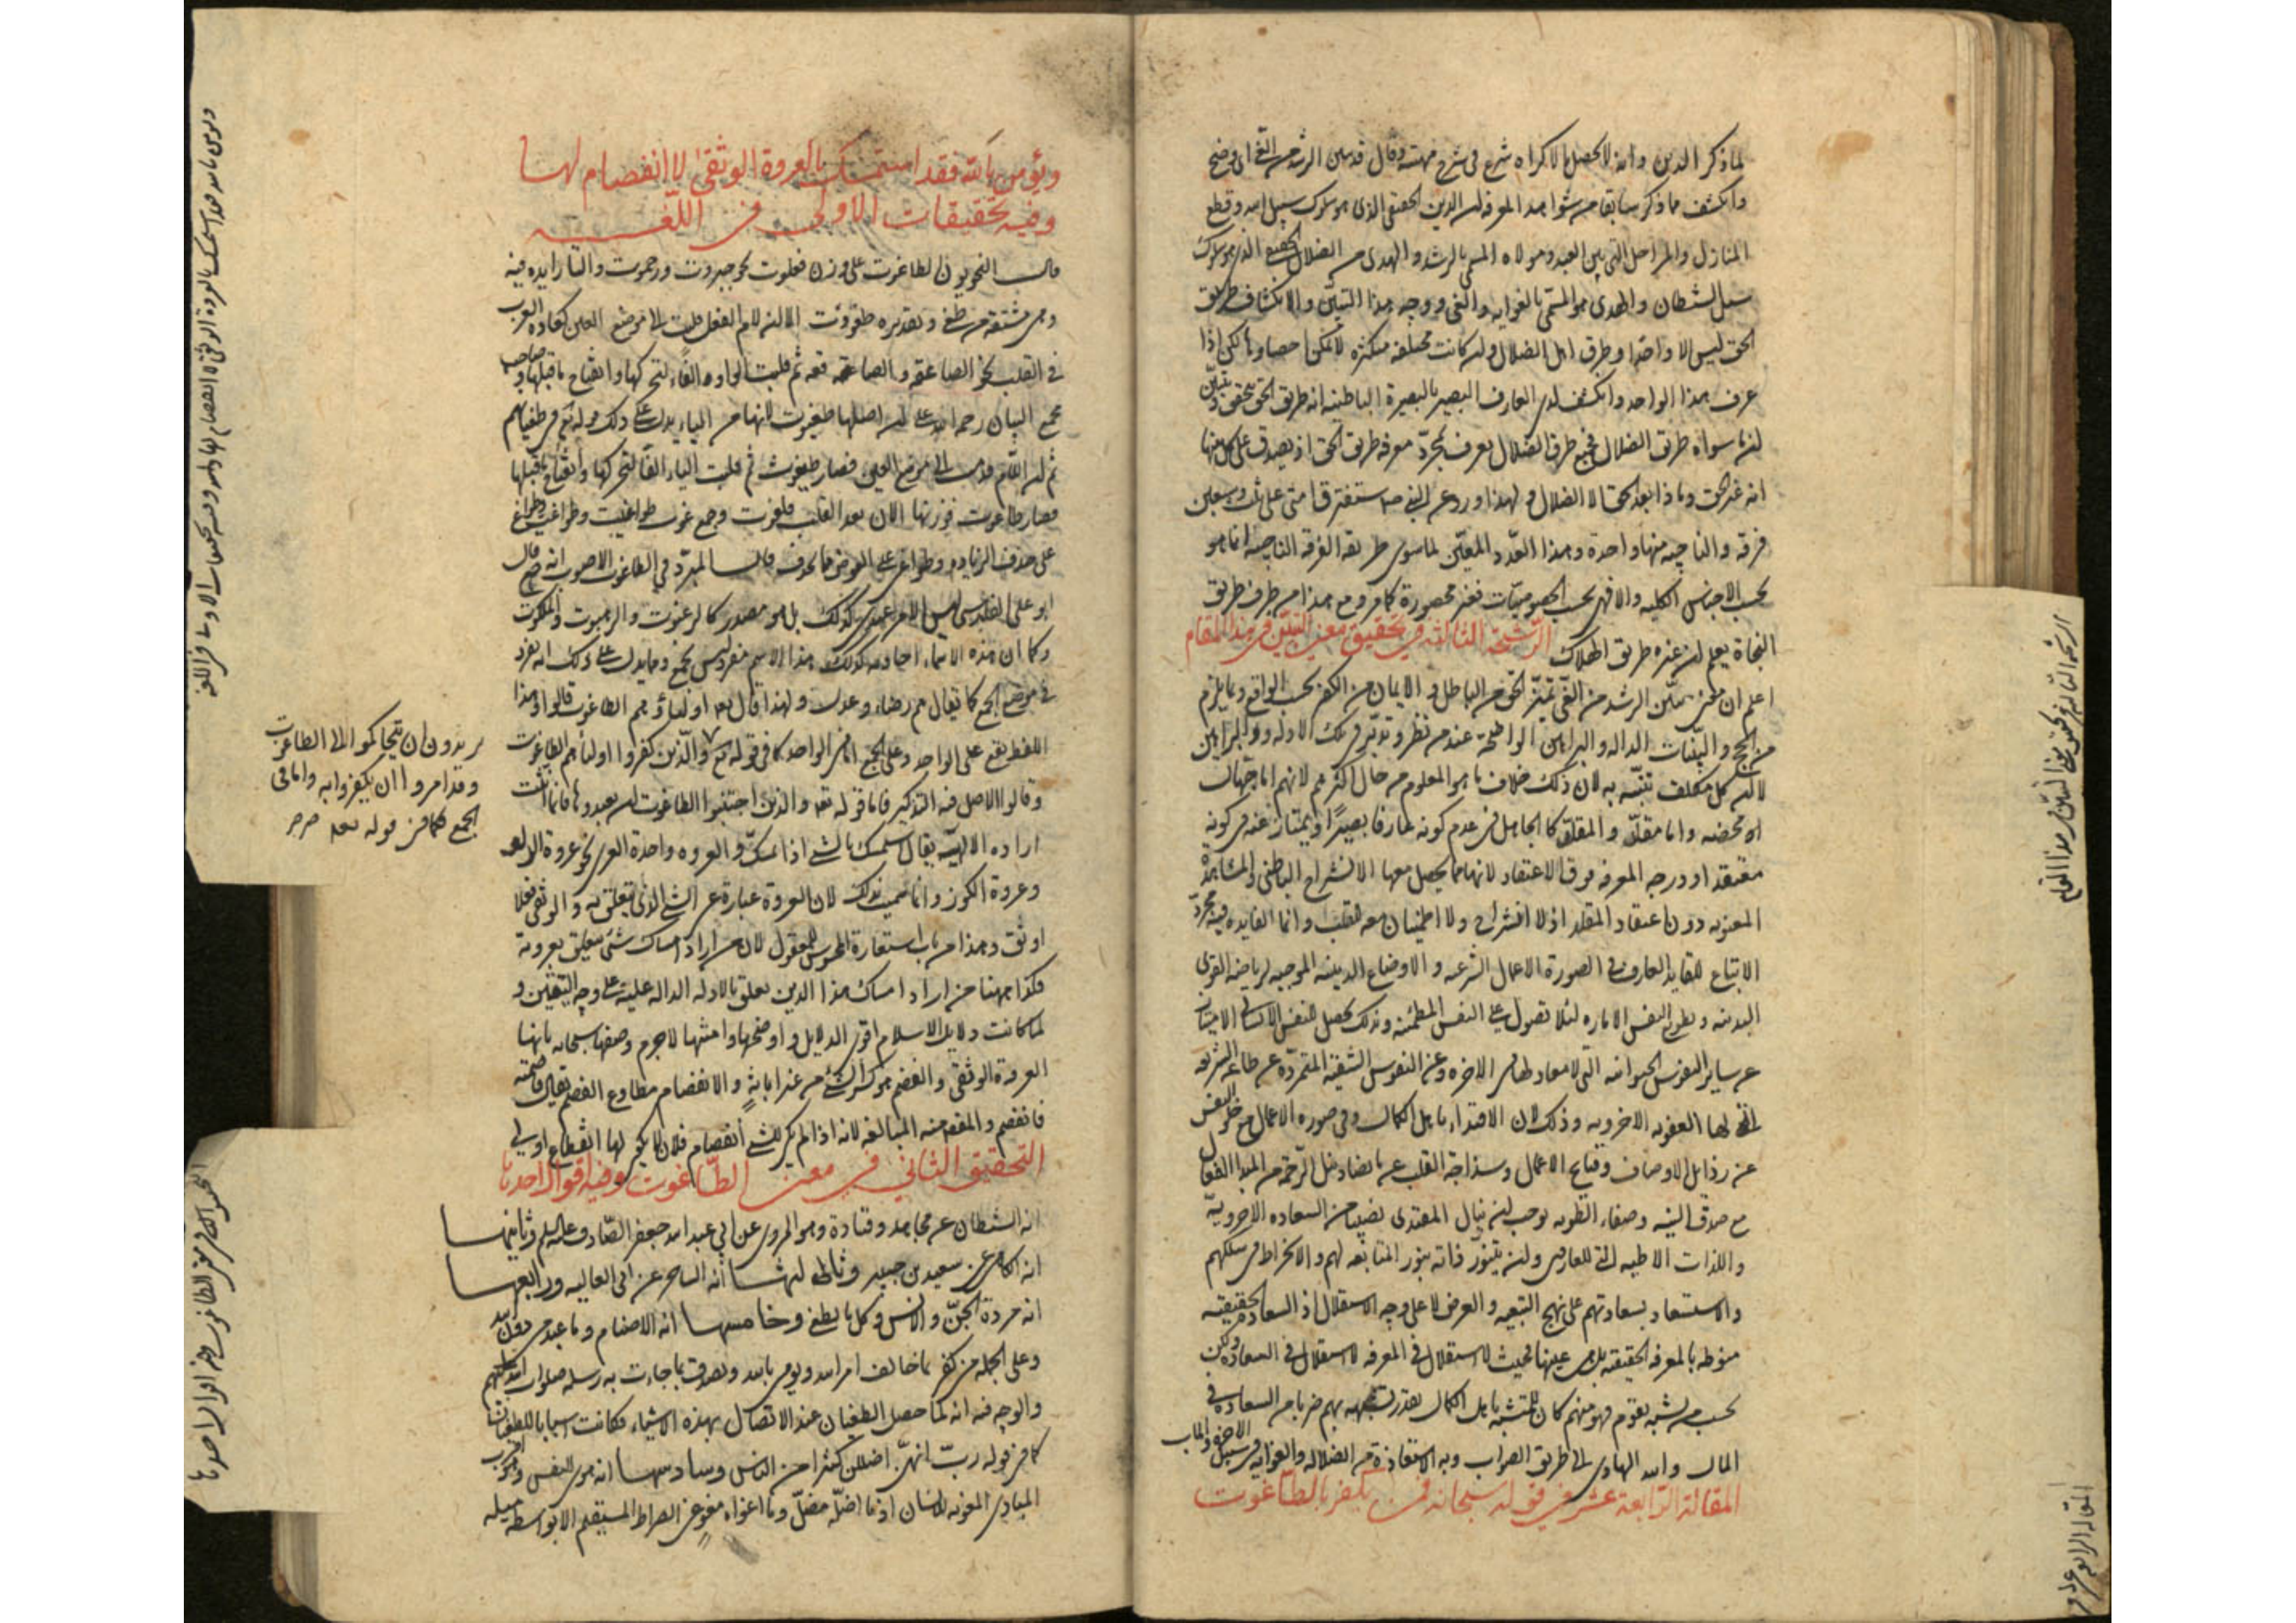 لما ذكر الدين وانه لا يحصل بالاكراه شرع في شرح مهيته وقال قد تبين الرشد من الغي اى وضح
وانكشف مما ذكر سابقا من شواهد المعرفة ان الدين الحقيقي الذى هو سلوك سبيل الله وقطع
المنازل والمراحل التي بين العبد ومولاه المسمى بالرشد والهدى من الضلال الحقيقي الذى هو سلوك
سبل الشيطان والهوى هو المسمى بالغوايه والغي ووجه هذا التبين والانكشاف ان طريق
الحق ليس الا واحدا وطرق اهل الضلال وان كانت مختلفه متكثره لا يمكن احصاوها لكن اذا
عرف هذا الواحد وانكشف لدى العارف البصير بالبصيرة الباطنيه انه طريق الحق تحقق وتبين
ان ما سواه طرق الضلال فجميع طرق الضلال يعرف بمجرد معرفه طريق الحق اذ يصدق على كل منها
انه غير الحق وماذا بعد الحق الا الضلال ولهذا ورد عن النبي ص ستفترق امتى على ثلث وسبعين
فرقه والناجيه منها واحدة وهذا العدد المعين لما سوى طريقه الفرقه الناجيه انما هو
بحسب الاجناس الكليه والا فهى بحسب الخصوصيات فغير محصورة كما مر ومع هذا من عرف طريق
النجاة يعلم ان غيره طريق الهلاك الرشحة الثالثه في تحقيق معنى التبين في هذا المقام
اعلم ان معنى تبين الرشد من الغي تميز الحق من الباطل والايمان من الكفر بحسب الواقع وبما يلزم
من الحجج والبينات الداله والبراهين الواضحة عند من نظر وتدبر في تلك الادله والبراهين
لا ان كل مكلف تنبه به لان ذلك خلاف ما هو المعلوم من حال اكثرهم لانهم اما جهال
محضه واما مقلد والمقلد كالجاهل في عدم كونه عارفا بصيرا ويمتاز عنه في كونه
معتقدا ودرجه المعرفه فوق الاعتقاد لانها مما يحصل معها الانشراح الباطني والمشاهدة
المعنويه دون اعتقاد المقلد اذ لا انشراح ولا اطمينان معه للقلب وانما الفايده فيه مجرد
الاتباع للقايد العارف في الصورة الاعمال الشرعيه والاوضاع الدينيه الموجبه لرياضه القوى
البدنيه وتطويع النفس الاماره لئلا تصول على النفس المطمئنه وبذلك يحصل للنفس الانسانى الامتياز
عن ساير النفوس الحيوانيه التي لا معاد لها في الاخره وعن النفوس الشقية المتمردة عن طاعه الشريعه
التى لها العقوبه الاخرويه وذلك لان الاقتداء باهل الكمال ولو في صورة الاعمال مع خلو النفس
عن رذايل الاوصاف وقبايح الاعمال وسذاجة القلب عما يضاد نيل الرحمة من المبدا الفعال
مع صدق النيه وصفاء الطويه يوجب ان ينال المقتدى نصيبا من السعاده الاخرويه
واللذات التى للعارفين وان يتنور ذاته بنور المتابعه لهم والانخراط فى سلكهم
والاستسعاد بسعادتهم على نهج التبعيه والعرض لا على وجه الاستقلال اذ السعادة الحقيقيه
منوطه بالمعرفه الحقيقيه بل هى عينها فحيث لا استقلال فى المعرفه لا استقلال فى السعادة ولكن
بحسب من تشبه بقوم فهو منهم كان للمتشبه باهل الكمال بقدر تشبهه بهم ضربا من السعاده فى
المال والله الهادى الى طريق الصواب وبه الاستعاذة من الضلاله والغوايه فى سبيل الاخرة والماب
المقالة الرابعة عشر في قوله سبحانه فمن يكفر بالطاغوت
الرشحه الثالثه فى تحقيق معنى التبين فى هذا المقام
المقاله الرابعه عشر
ويؤمن بالله فقد استمسك بالعروة الوثقى لا انفصام لها
وفيه تحقيقات الاولى في اللغـــه
قالـ النحويون الطاغوت على وزن فعلوت نحو جبروت ورحموت والتا زايده فيه
وهى مشتقه من طغى وتقديره طغووت الا ان لام الفعل قلبت الى موضع العين كعاده العرب
فى القلب نحو الصاعقه والصاقعه ثم قلبت الواو الفا لتحركها وانفتاح ما قبلها وصاحب
مجمع البيان رحمه الله على ان اصلها طغيوت لانها من الياء يدل على ذلك قوله تع فى طغيانهم
ثم ان اللام قدمت الى موضع العين فصار طيغوت ثم قلبت الياء الفا لتحركها وانفتاح ما قبلها
فصار طاغوت فوزنها الان بعد القلب فلعوت وجمع طاغوت طواغيت وطواغت وطواغ
على حذف الزياده وطواغى على العوض مما يحذف قالـ المبرد فى الطاغوت الاصوب انه جمع قال
ابو على الفارسى ليس الامر عندى كذلك بل هو مصدر كالرغبوت والرهبوت والملكوت
وكما ان هذه الاسماء احاد كذلك هذا الاسم مفرد ليس بجمع ومما يدل على ذلك انه يفرد
في موضع الجمع كما يقال هم رضا وهم عدل ولهذا قال تعه اولياؤهم الطاغوت قالوا وهذا
اللفظ يقع على الواحد وعلى الجمع اما فى الواحد كما فى قوله تع والذين كفروا اولياؤهم الطاغوت
وقالوا الاصل فيه التذكير فاما قوله تعه والذين اجتنبوا الطاغوت ان يعبدوها فانما انثت
اراده الالهة يقال استمسك بالشئ اذا تمسك به والعروه واحدة العرى نحو عروة الدلو
وعروة الكوز وانما سميت بذلك لان العروة عبارة عن الشئ الذى يتعلق به والوثقى فعلى
اوثق وهذا من باب استعارة المحسوس للمعقول لان من اراد امساك شئ يتعلق بعروته
فكذا ههنا من اراد امساك هذا الدين تعلق بالادله الداله عليه على وجه اليقين و
لما كانت دلايل الاسلام اقوى الدلايل واوضحها وامتنها لا جرم وصفها سبحانه بانها
العروة الوثقى والفصم هو كسر الشئ من غير ابانة والانفصام مطاوع الفصم يقال فصمته
فانفصم والمقصود منه المبالغه لانه اذا لم يكن للشئ انفصام فلان لا يكون لها انقطاع اولى
التحقيق الثاني في معنى الطاغوت وفيه اقوال احدها
انه الشيطان عن مجاهد وقتادة وهو المروى عن ابي عبد الله جعفر الصادق عليه السلم وثانيهـا
انه الكاهن عن سعيد بن جبير وثالثهـا انه الساحر عن ابى العاليه ورابعهـا
انه مردة الجن والانس وكل ما يطغى وخامسهـا انه الاصنام وما عبد من دون الله
وعلى الجمله من كفر بما خالف امر الله ويومن بالله ويصدق بما جاءت به رسله صلوات الله عليهم
والوجه فيه انه لما حصل الطغيان عند الاتصال بهذه الاشياء فكانت اسبابا للطغيان
كما فى قوله رب انهن اضللن كثيرا من الناس وسادسهـا انه هوى النفس وهو اقرب
المبادى المغويه للانسان اذ ما اضله مضل وما اغواه مغو عن الصراط المستقيم الا بواسطه ميله
يريدون ان يتحاكموا الى الطاغوت
وقد امروا ان يكفروا به واما فى
الجمع فكما فى قوله تعه
ويومن بالله فقد استمسك بالعروة الوثقى لا انفصام لها وفيه تحقيقات الاولى فى اللغه
التحقيق الثانى فى معنى الطاغوت وفيه اقوال احدها